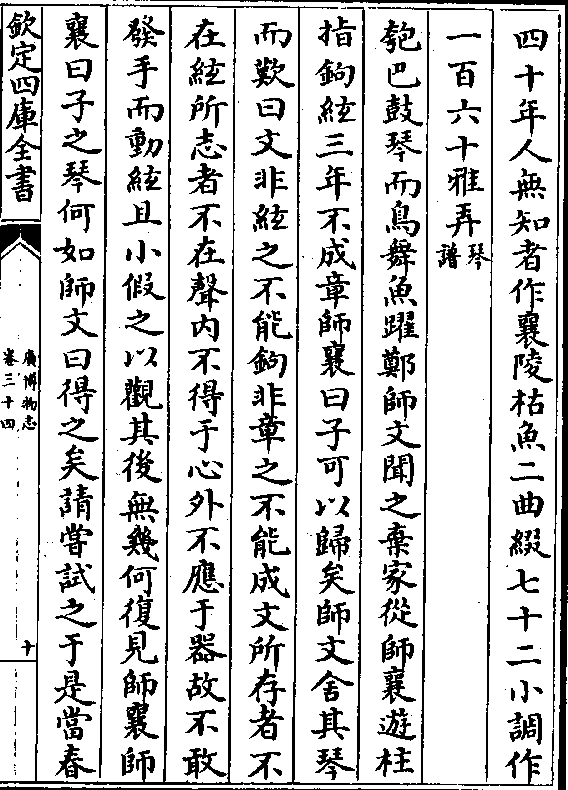 四十年人無知者作襄陵枯魚二曲綴七十二小調作
一百六十雅弄琴譜
瓠巴鼓琴而鳥舞魚躍鄭師文聞之棄家從師襄遊柱
指鉤絃三年不成章師襄曰子可以歸矣師文舍其琴
而歎曰文非絃之不能鉤非章之不能成文所存者不
在絃所志者不在聲内不得于心外不應于器故不敢
發手而動絃且小假之以觀其後無幾何復見師襄師
襄曰子之琴何如師文曰得之矣請嘗試之于是當春
欽定四庫全書
廣博物志
卷三十四
十